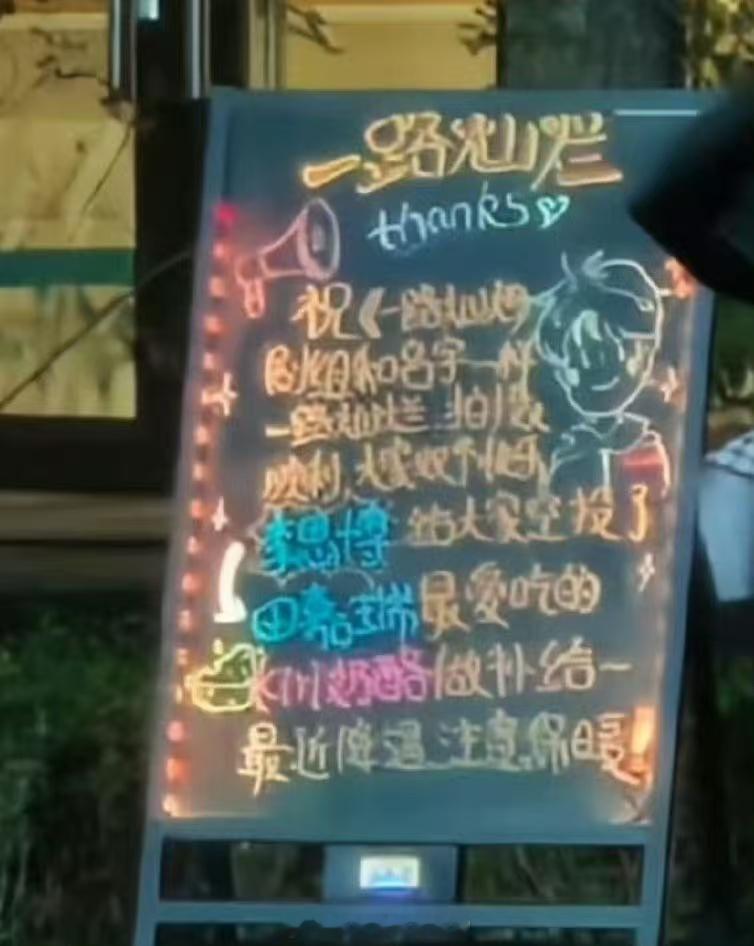 一路灿烂
thanks
祝《一路灿烂
剧组和名字一样
一路灿烂 拍摄
顺利,大家收个
李思博给大家空投了
田嘉瑞最爱吃的
奶酪做补给~
最近降温,注意保暖